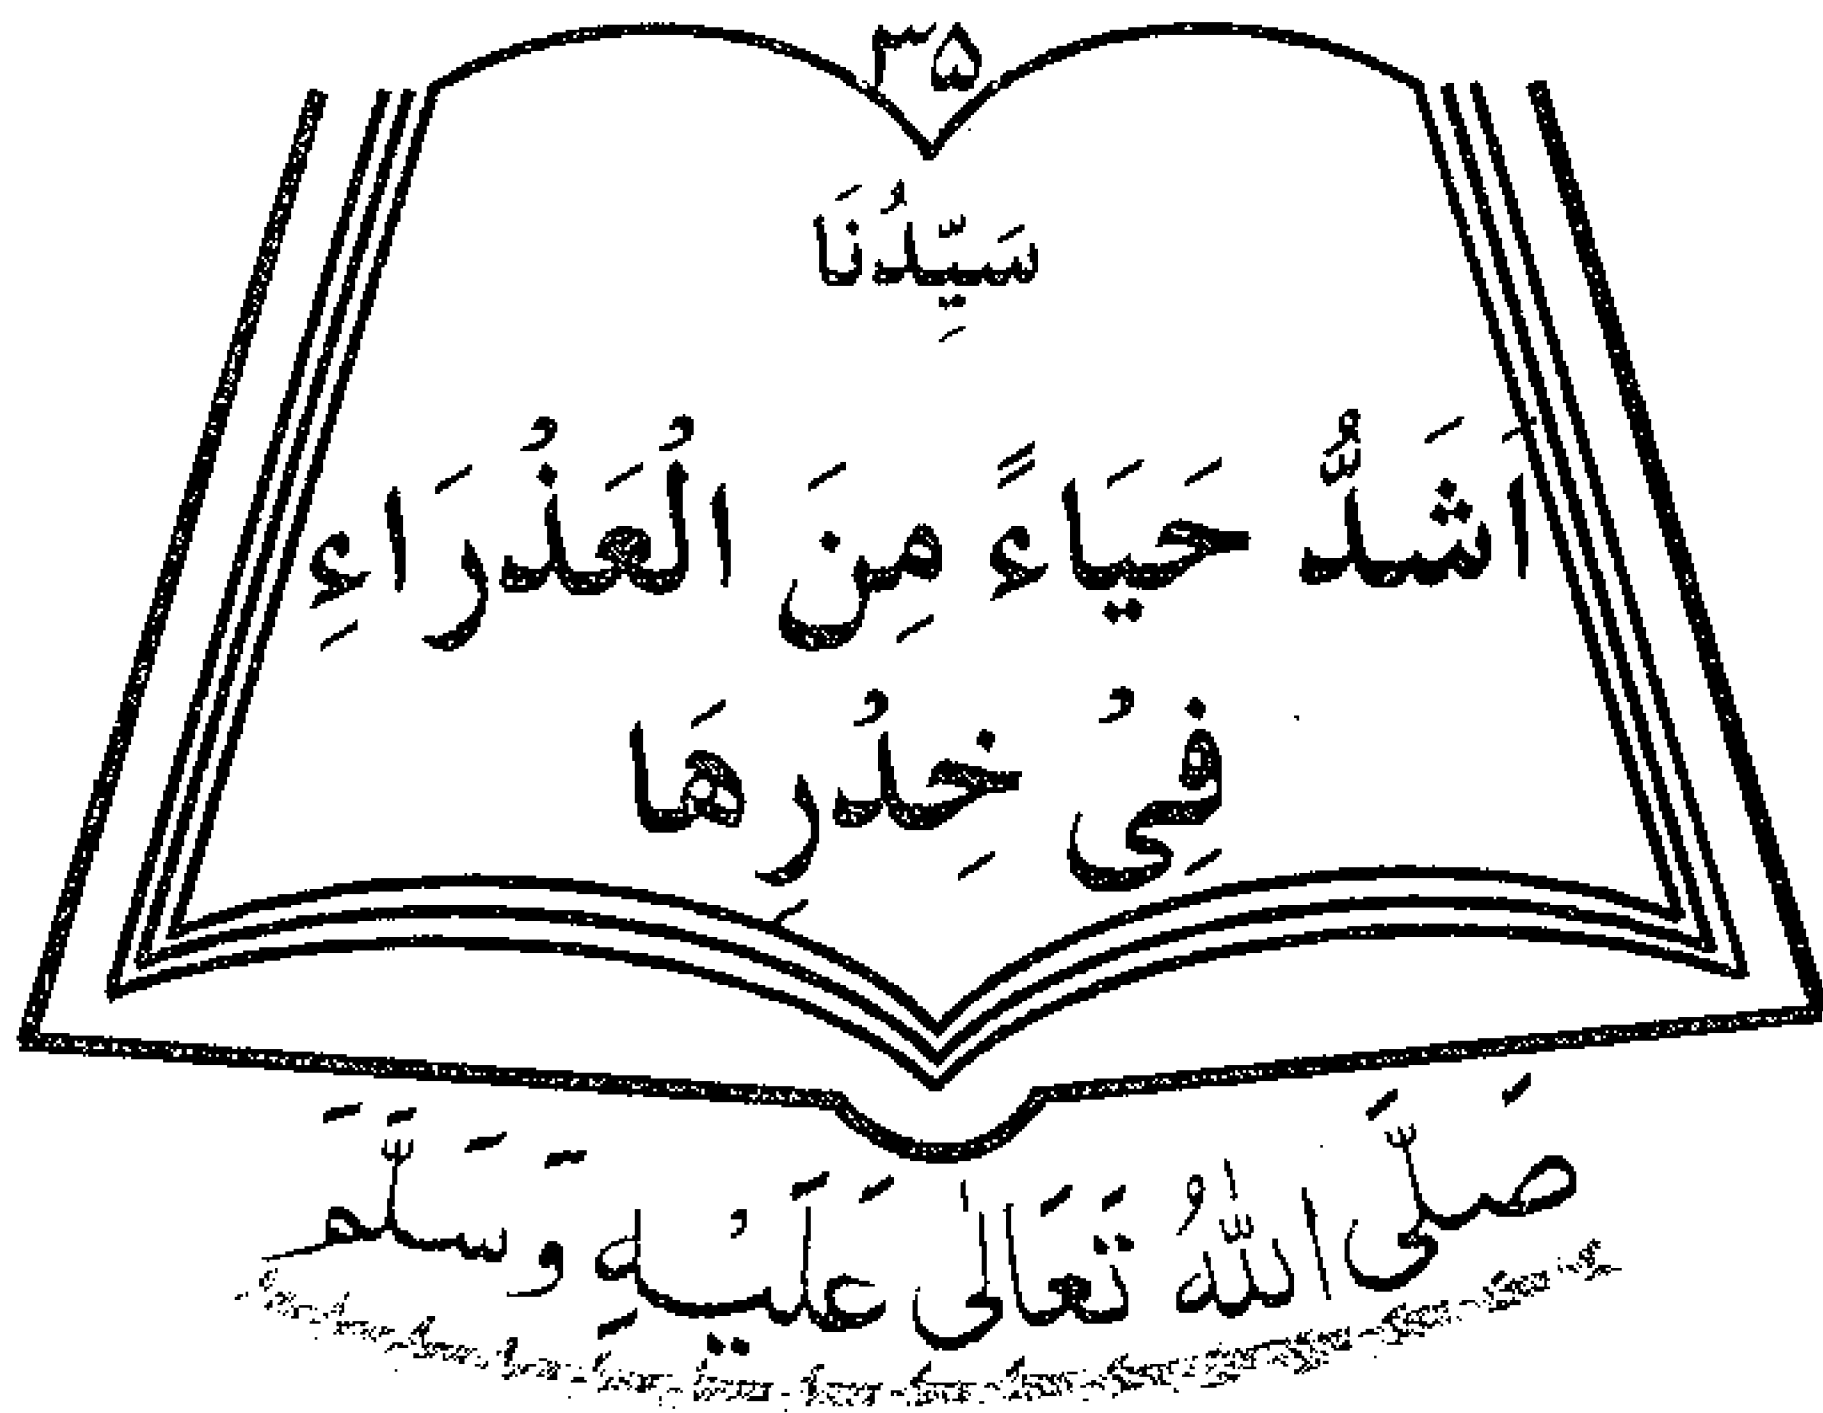 ۳۵
سَيِّدُنَا
اَشَدُّ حَيَاءً مِنَ الْعَذْرَاءِ
فِیْ خِدْرِهَا
صَلَّی اللّٰهُ تَعَالٰی عَلَيْهِ وَسَلَّمَ